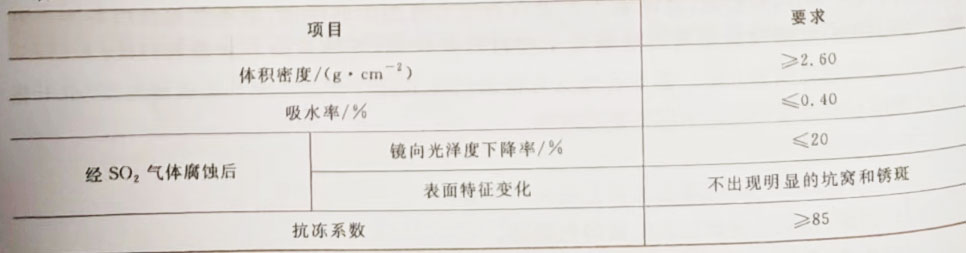 项目 要求
体积密度/(g·cm⁻²) ≥2.60
吸水率/% ≤0.40
经SO₂气体腐蚀后 镜向光泽度下降率/% ≤20
表面特征变化 不出现明显的坑窝和锈斑
抗冻系数 ≥85